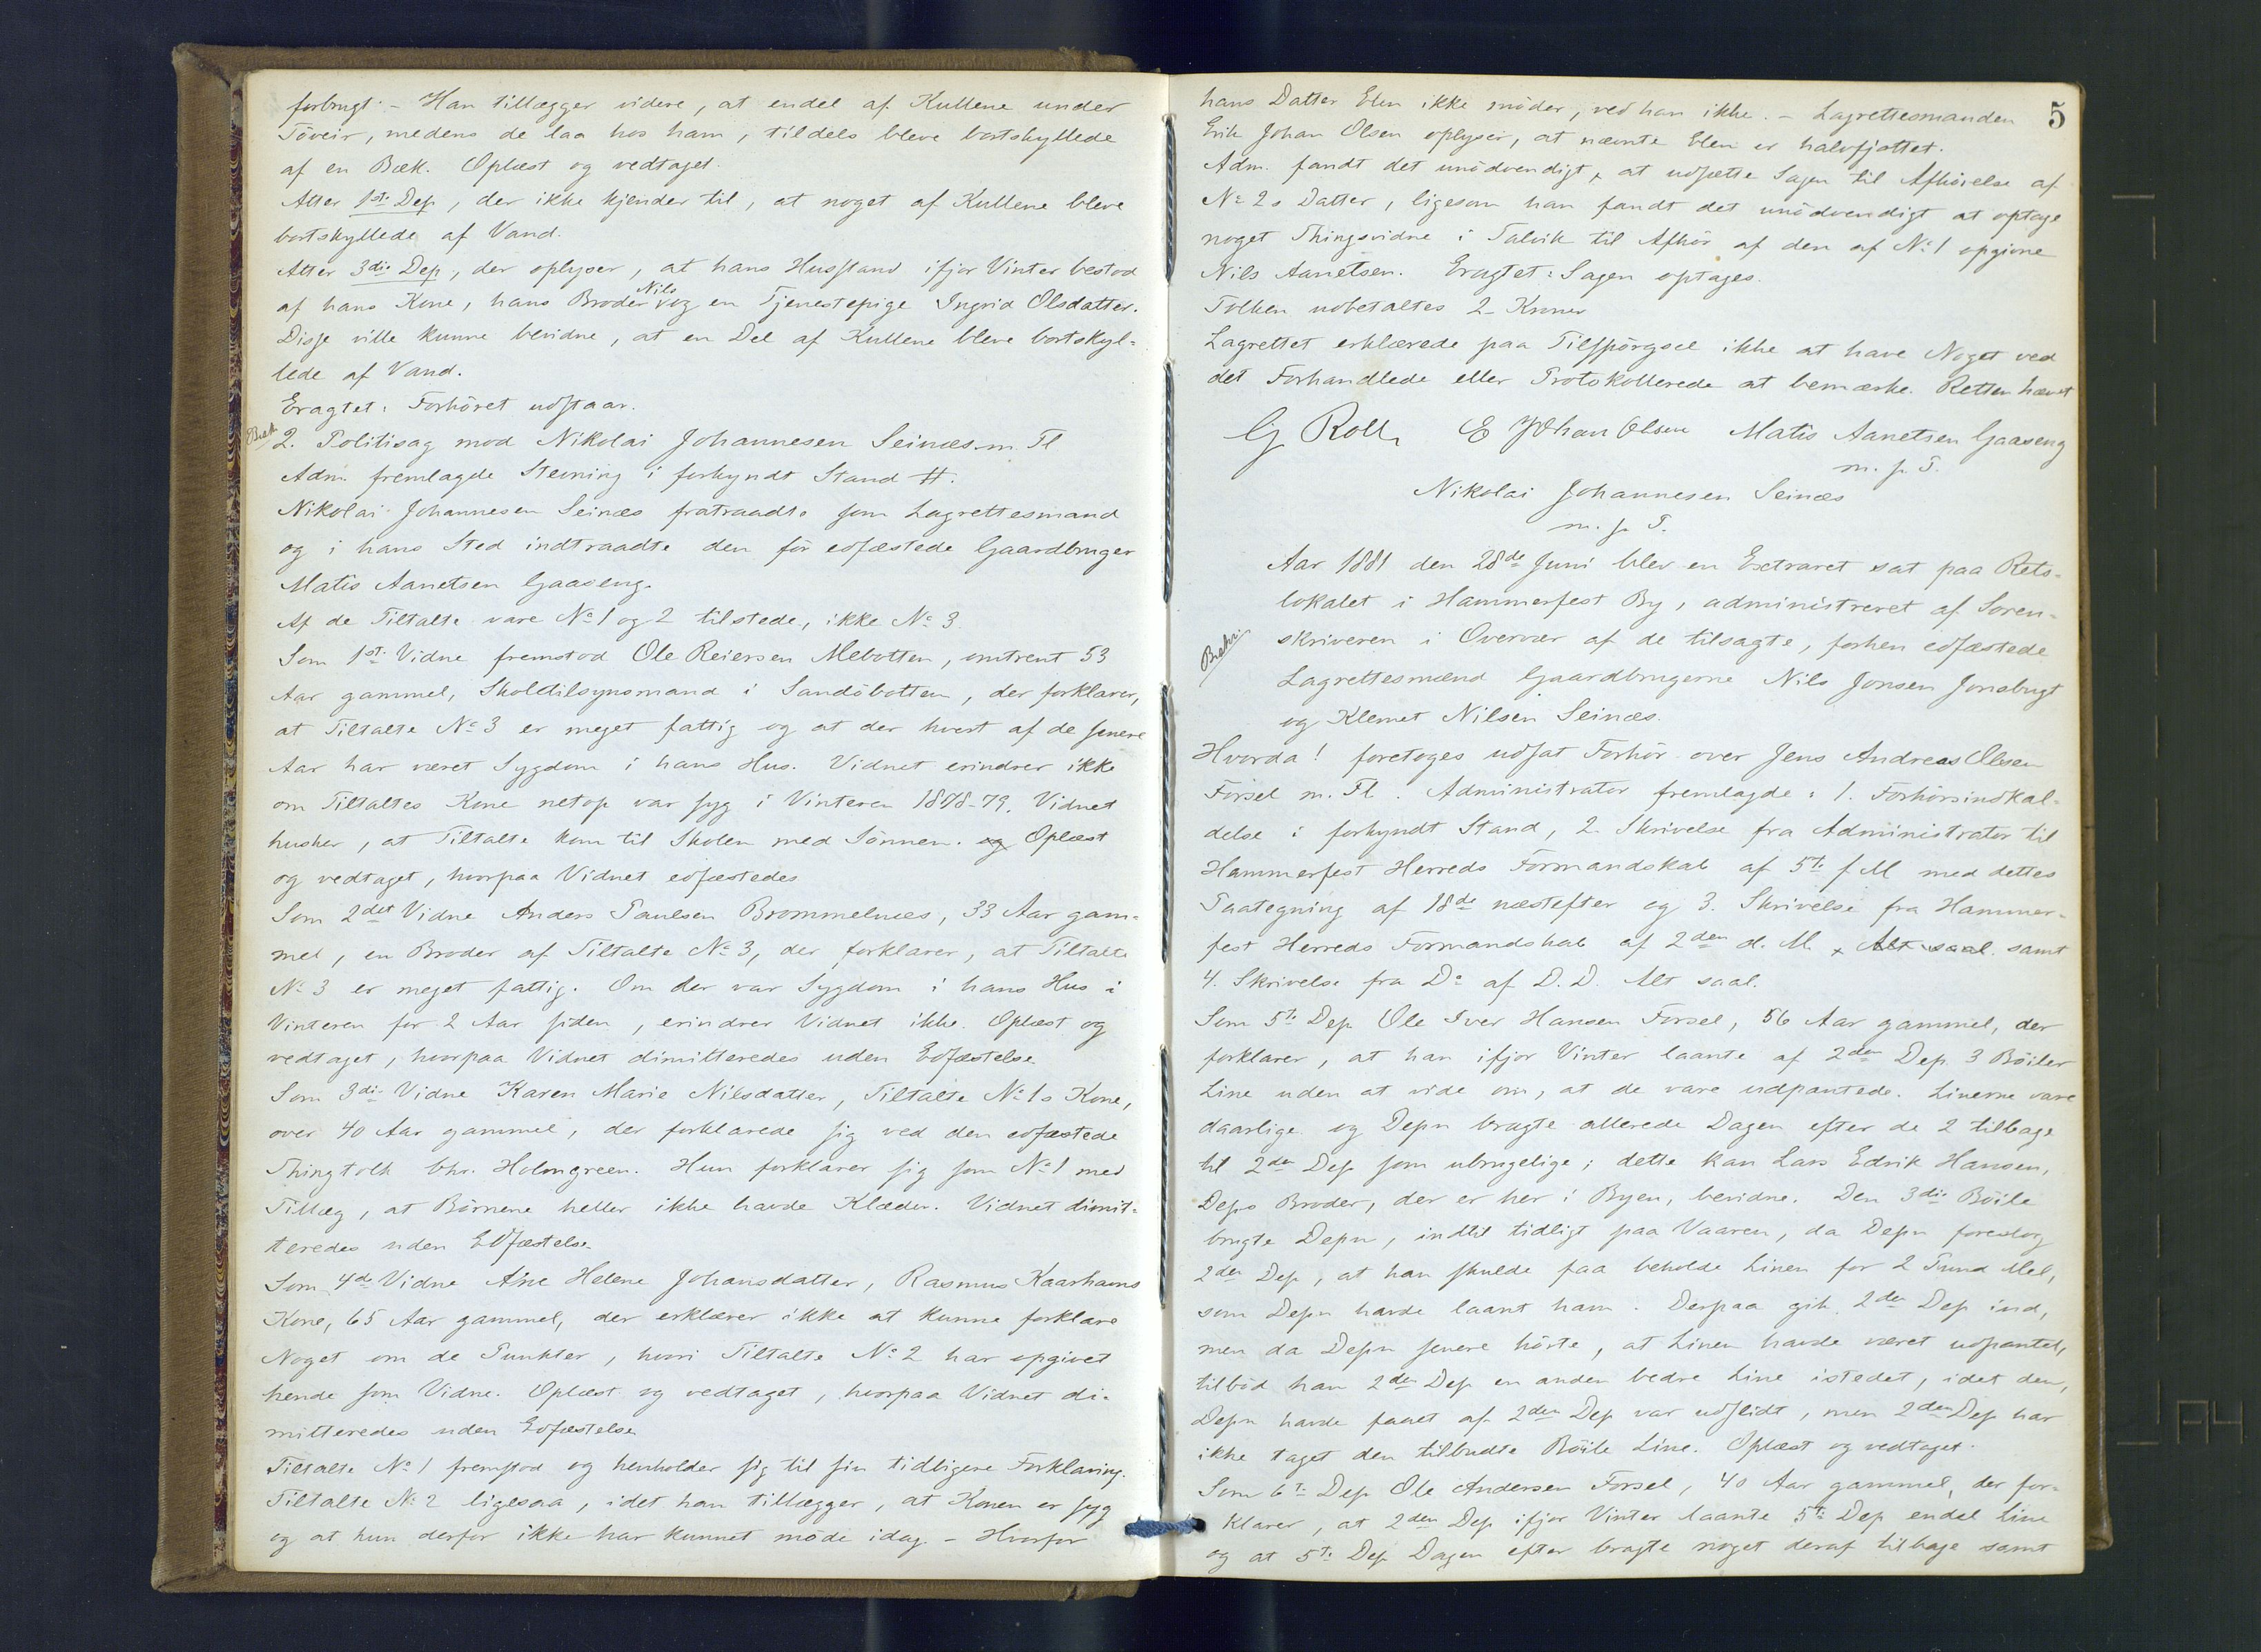 forbrugt. – Han tillægger videre, at endel af Kullene under
Töveir, medens de laa hos ham, tildels bleve bortskyllede
af en Bæk. Oplæst og vedtaget.
Atter 1ste Dep, der ikke kjender til, at noget af Kullene bleve
bortskyllede af Vand.
Atter 3die Dep, der oplyser, at hans Husstand ifjor Vinter bestod
af hans Kone, hans Broder Nils og en Tjenestepige Ingrid Olsdatter.
Disse ville kunne bevidne, at en Del af Kullene bleve bortskyl-
lede af Vand.
Eragtet: Forhöret udstaar.
2. Politisag mod Nikolai Johannesen Seinæs m. Fl
Adm. fremlagde Stevning i forkyndt Stand #.
Nikolai Johannesen Seinæs fratraadte som Lagrettesmand
og i hans Sted indtraadte den för edfæstede Gaardbruger
Matis Aanetsen Gaaseng.
Af de Tiltalte vare No 1 og 2 tilstede, ikke No 3.
Som 1ste Vidne fremstod Ole Reiersen Mebotten, omtrent 53
Aar gammel, Skoletilsynsmand i Sandöbotten, der forklarer,
at Tiltalte No 3 er meget fattig og at der hvert af de senere
Aar har været Sygdom i hans Hus. Vidnet erindrer ikke
om Tiltaltes Kone netop var syg i Vinteren 1878-79. Vidnet
husker, at Tiltalte kom til Skolen med Sönnen. og Oplæst
og vedtaget, hvorpaa Vidnet edfæstedes
Som 2det Vidne Anders Paulsen Brommelnæs, 33 Aar gam-
mel, en Broder af Tiltalte No 3, der forklarer, at Tiltalte
No 3 er meget fattig. Om der var Sygdom i hans Hus i
Vinteren for 2 Aar siden, erindrer Vidnet ikke. Oplæst og
vedtaget, hvorpaa Vidnet dimitteredes uden Edfæstelse.
Som 3die Vidne Karen Marie Nilsdatter, Tiltalte No 1s Kone,
over 40 Aar gammel, der forklarede sig ved den edfæstede
Thingtolk Chr. Holmgreen. Hun forklarer sig som No 1 med
Tillæg, at Börnene heller ikke havde Klæder. Vidnet dimit-
teredes uden Edfæstelse.
Som 4de Vidne Ane Helene Johansdatter, Rasmus Kaarhavns
Kone, 65 Aar gammel, der erklærer ikke at kunne forklare
Noget om de Punkter, hvori Tiltalte No 2 har opgivet
hende som Vidne. Oplæst og vedtaget, hvorpaa Vidnet di-
mitteredes uden Edfæstelse
Tiltalte No 1 fremstod og henholder sig til sin tidligere Forklaring.
Tiltalte No 2 ligesaa, idet han tillægger, at Konen er syg
og at hun derfor ikke har kunnet möde idag – Hvorfor
5
hans Datter Elen ikke möder, ved han ikke. – Lagrettesmanden
Erik Johan Olsen oplyser, at nævnte Elen er halvfjottet.
Adm. fandt det unödvendigt, at udsætte Sagen til Afhörelse af
No 2s Datter, ligesom han fandt det unödvendigt at optage
noget Thingsvidne i Talvik til Afhör af den af No 1 opgivne
Nils Aanetsen. Eragtet: Sagen optages.
Tolken udbetaltes 2 Kroner
Lagrettet erklærede paa Tilspörgsel ikke at have Noget ved
det Forhandlede eller Protokollerede at bemærke. Retten hævet
G Roll E Johan Olsen Matis Aanetsen Gaaseng
m. p. P.
Nikolai Johannesen Seinæs
m. p. P.
Aar 1881 den 28de Juni blev en Extraret sat paa Rets-
lokalet i Hammerfest By, administreret af Soren-
skriveren i Overvær af de tilsagte, forhen edfæstede
Lagrettesmænd Gaardbrugerne Nils Jonsen Jonsbugt
og Klemet Nilsen Seinæs.
Hvorda! foretoges udsat Forhör over Jens Andreas Olsen
Forsel m. Fl. Administrator fremlagde: 1. Forhörsindkal-
delse i forkyndt Stand, 2. Skrivelse fra Administrator til
Hammerfest Herreds Formandskab af 5te f. M med dettes
Paategning af 18de næstefter og 3. Skrivelse fra Hammer-
fest Herreds Formandskab af 2den d. M. Alt saal. samt
4. Skrivelse fra Do af D. D. Alt saal.
Som 5te Dep Ole Iver Hansen Forsel, 56 Aar gammel, der
forklarer, at han ifjor Vinter laante af 2den Dep. 3 Böiler
Line uden at vide om, at de vare udpantede. Linerne vare
daarlige og Depn bragte allerede Dagen efter de 2 tilbage
til 2den Dep som ubrugelige; dette kan Lars Edvik Hansen,
Deps Broder, der er her i Byen, bevidne. Den 3die Böile
brugte Depn, indtil tidligt paa Vaaren, da Depn foreslog
2den Dep, at han skulde faa beholde Linen for 2 Pund Mel,
som Depn havde laant ham. Derpaa gik 2den Dep ind,
men da Depn senere hörte, at Linen havde været udpantet,
tilböd han 2den Dep en anden bedre Line istedet, idet den,
Depn havde faaet af 2den Dep var udslidt, men 2den Dep har
ikke taget den tilbudte Böile Line. Oplæst og vedtaget.
Som 6te Dep Ole Andersen Forsel, 40 Aar gammel, der for-
klarer, at 2den Dep ifjor Vinter laante 5te Dep endel Line
og at 5te Dep Dagen efter bragte noget deraf tilbage samt